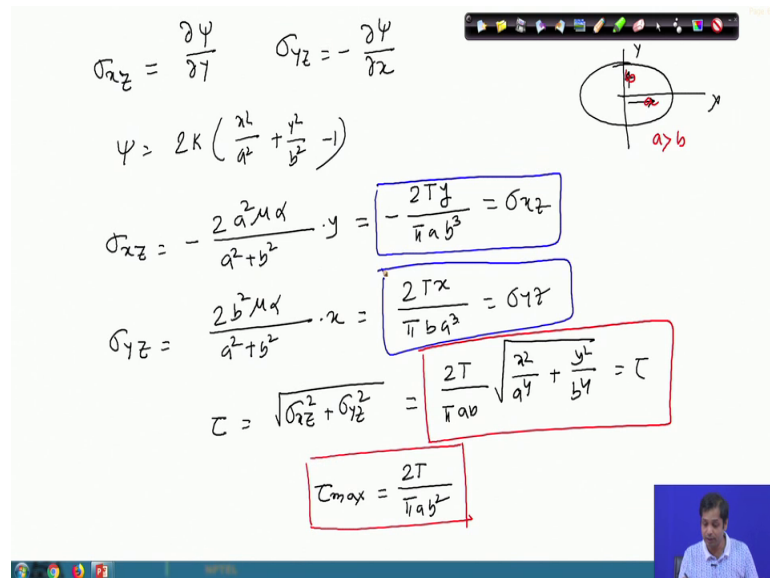 σxz = ∂ψ/∂y    σyz = - ∂ψ/∂x
y
x
b
a
a > b
ψ = 2K ( x²/a² + y²/b² - 1 )
σxz = - 2a²μα/(a²+b²) · y = - 2Ty/(πab³) = σxz
σyz = 2b²μα/(a²+b²) · x = 2Tx/(πba³) = σyz
τ = √(σxz² + σyz²) = 2T/(πab) √(x²/a⁴ + y²/b⁴) = τ
τmax = 2T/(πab²)
NPTEL